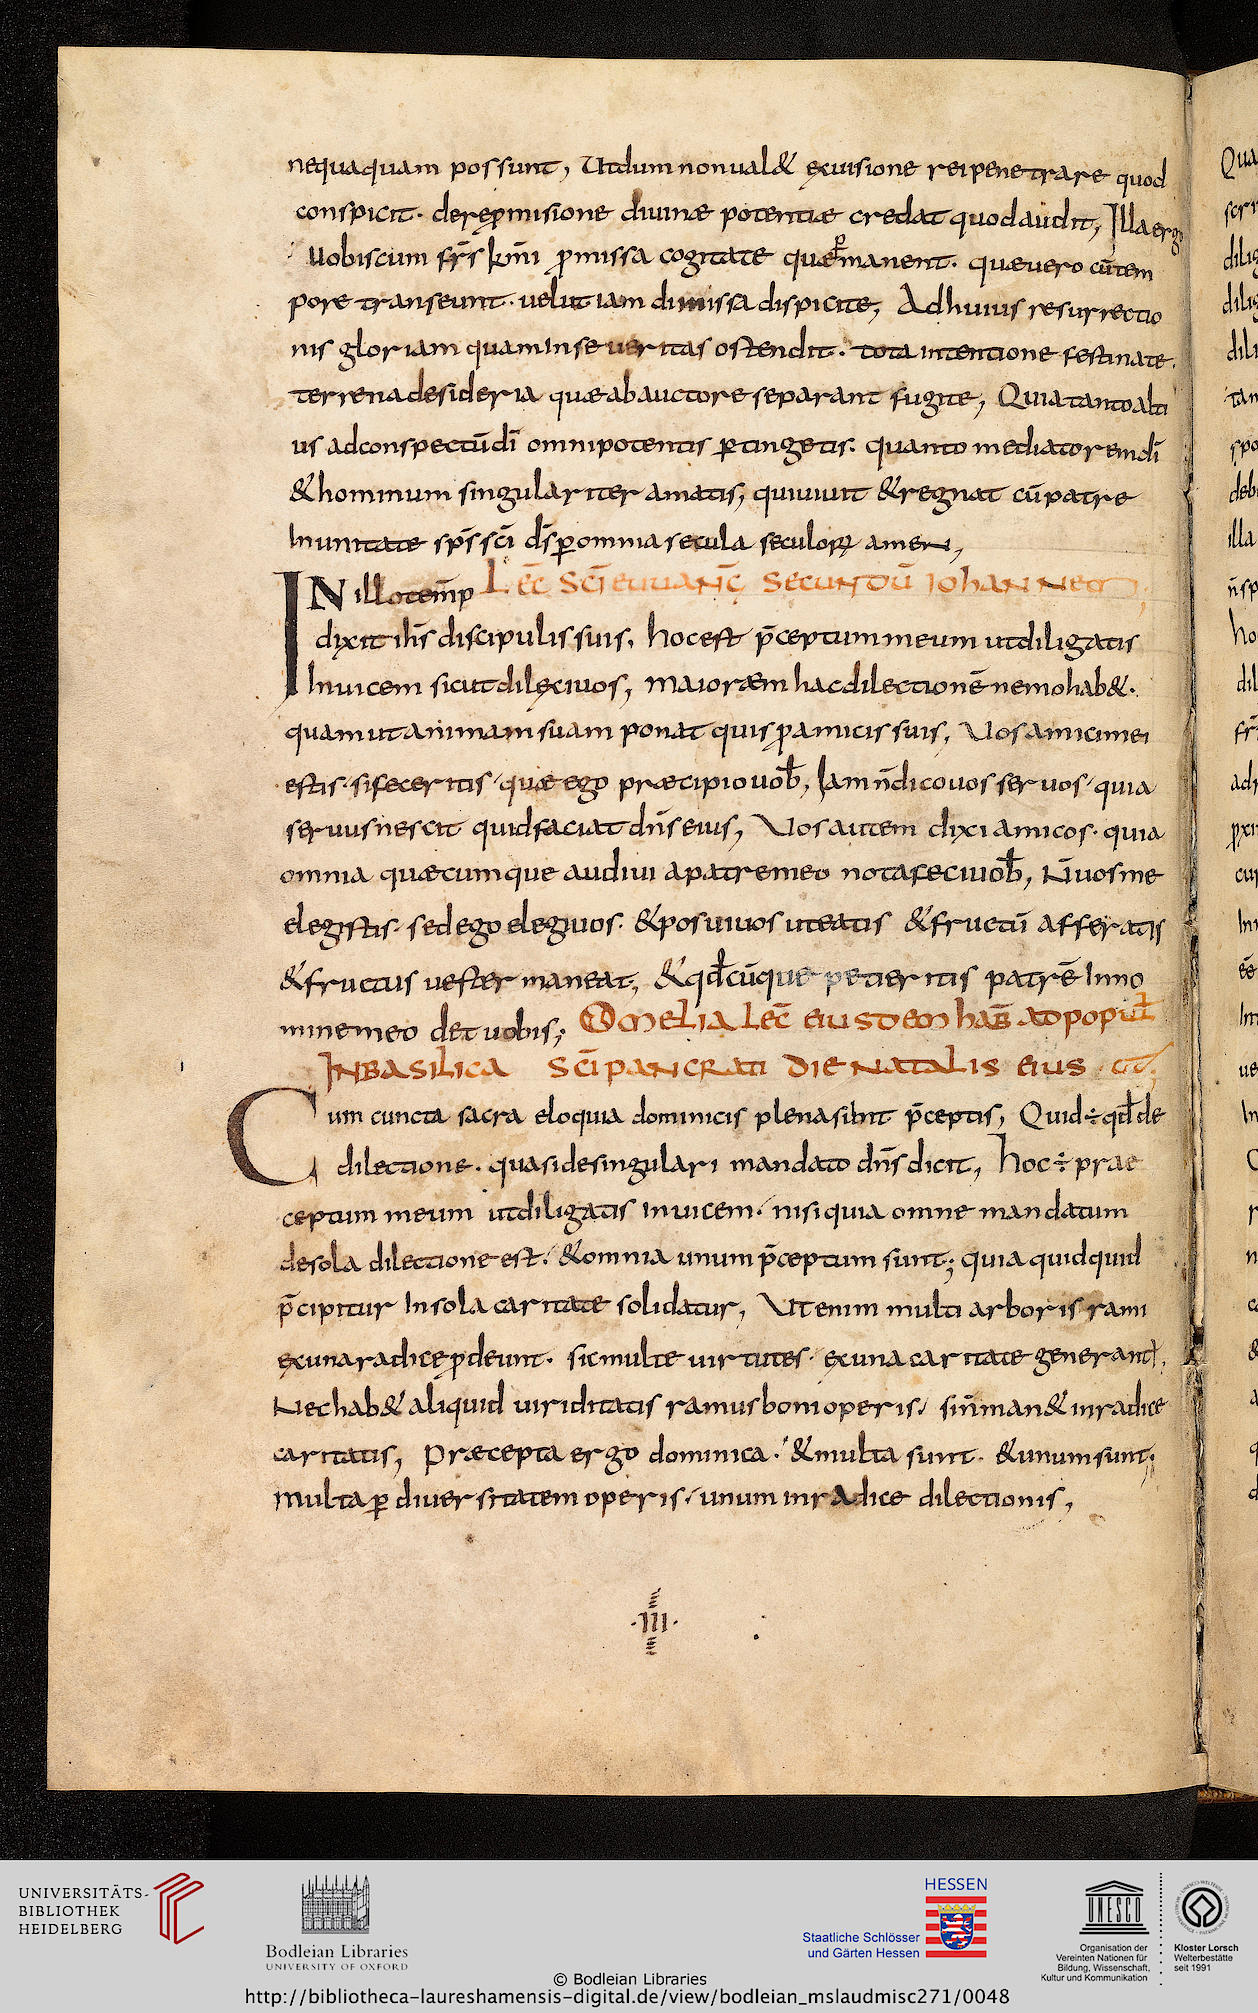 nequaquam possunt, Utdum nonual& exuisione rei penetrare quod
conspicit. derep̱misione diuinæ potentiæ credat quod audit, Illa ergo
uobiscum fr̄s km̄i p̱missa cogitate quæ p̱manent. quæ uero cū tem
pore transeunt. uelut iam dimissa dispicite, Ad huius resurrectio
nis gloriam quam In se ueritas ostendit. tota intentione festinate.
terrena desideria quæ ab auctore separant fugite, Quia tanto alti
us ad conspectū dī omnipotentis p̱tingetis. quanto mediatorem dī
& hominum singulariter amatis, qui uiuit & regnat cū patre
In unitate sp̄s sc̄i d̄s p̱ omnia secula seculoꝝ amen,
IN illo tem̄p Lec̄ sc̄i euuanḡ secundū iohannem;
dixit ih̄s discipulis suis. hoc est p̄ceptum meum ut diligatis
Inuicem sicut dilexi uos, Maiorem hac dilectionē nemo hab&.
quam ut animam suam ponat quis p̱ amicis suis, Vos amici mei
estis. si feceritis quæ ego præcipio uob̄, Iam n̄ dico uos seruos quia
seruus nescit quid faciat dn̄s eius, Vos autem dixi amicos. quia
omnia quæcumque audiui a patre meo nota feci uob̄, N̄ uos me
elegistis. sed ego elegi uos. & posui uos ut eatis & fructū afferatis
& fructus uester maneat, & qd̄cūque petieritis patrē In no
mine meo det uobis; Omelia lec̄ eiusdem hab̄ ad popuł
In basilica sc̄i pancrati die natalis eius
Cum cuncta sacra eloquia dominicis plena sint p̄ceptis, Quid ÷ qd̄ de
dilectione. quasi de singulari mandato dn̄s dicit, hoc ÷ prae
ceptum meum ut diligatis inuicem. nisi quia omne mandatum
de sola dilectione est. & omnia unum p̄ceptum sunt; quia quidquid
p̄cipitur In sola caritate solidatur, Ut enim multi arboris rami
ex una radice p̱deunt. sic multe uirtutes ex una caritate generant̄.
Nec hab& aliquid uiriditatis ramus boni operis, si n̄ man& in radice
caritatis, Præcepta ergo dominica. & multa sunt. & unum sunt;
Multa p̱ diuersitatem operis, unum in radice dilectionis,
·III·
UNIVERSITÄTS-
BIBLIOTHEK
HEIDELBERG
Bodleian Libraries
UNIVERSITY OF OXFORD
HESSEN
Staatliche Schlösser
und Gärten Hessen
UNESCO
Organisation der
Vereinten Nationen für
Bildung, Wissenschaft,
Kultur und Kommunikation
Kloster Lorsch
Welterbestätte
seit 1991
© Bodleian Libraries
http://bibliotheca-laureshamensis-digital.de/view/bodleian_mslaudmisc271/0048